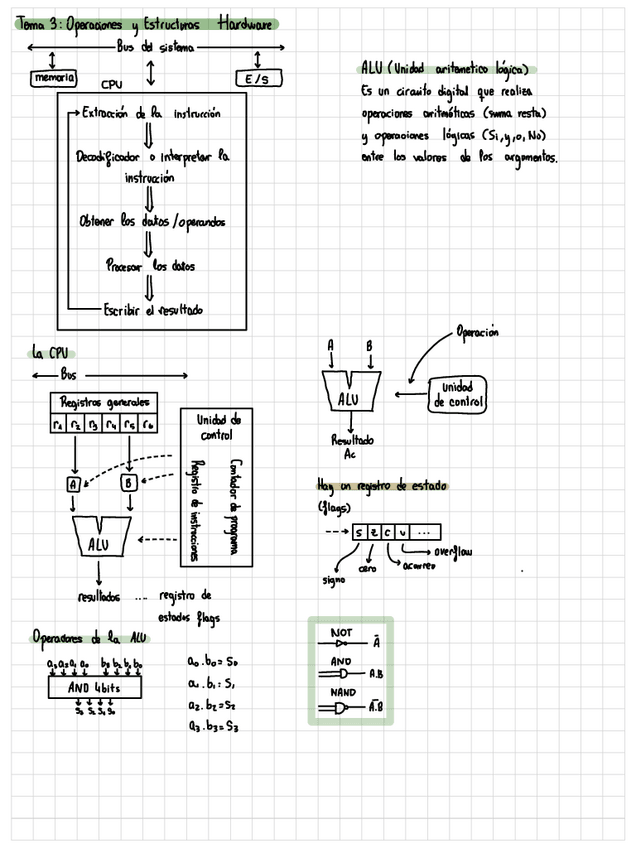 Tema 3: Operaciones y Estructuras Hardware
Bus del sistema
memoria
CPU
E/S
Extracción de la instrucción
Decodificador o interpretar la
instrucción
Obtener los datos/operandos
Procesar los datos
Escribir el resultado
ALU (Unidad aritmetico lógica)
Es un circuito digital que realiza
operaciones aritméticas (suma resta)
y operaciones lógicas (Si, y, o, No)
entre los valores de los argumentos.
La CPU
Bus
Registros generales
r1 r2 r3 r4 r5 r6
A
B
ALU
resultados ... registro de
estados flags
Unidad de
control
Contador de programa
Registro de instrucciones
A
B
ALU
Operación
Unidad
de control
Resultado
Ac
Hay un registro de estado
(flags)
S Z C V ...
signo
cero
acarreo
overflow
Operadores de la ALU
a3 a2 a1 a0 b3 b2 b1 b0
AND 4bits
S3 S2 S1 S0
a0.b0=S0
a1.b1:S1
a2.b2=S2
a3.b3=S3
NOT
Ā
AND
A.B
NAND
A̅.B